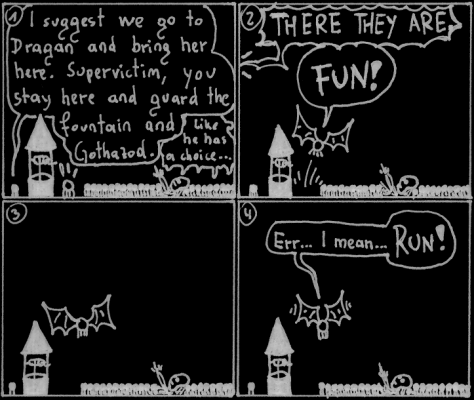 1
I suggest we go to
Dragan and bring her
here. Supervictim, you
stay here and guard the
fountain and
Gothazod.
Like
he has
a choice...
2
THERE THEY ARE
FUN!
3
4
Err... I mean... RUN!